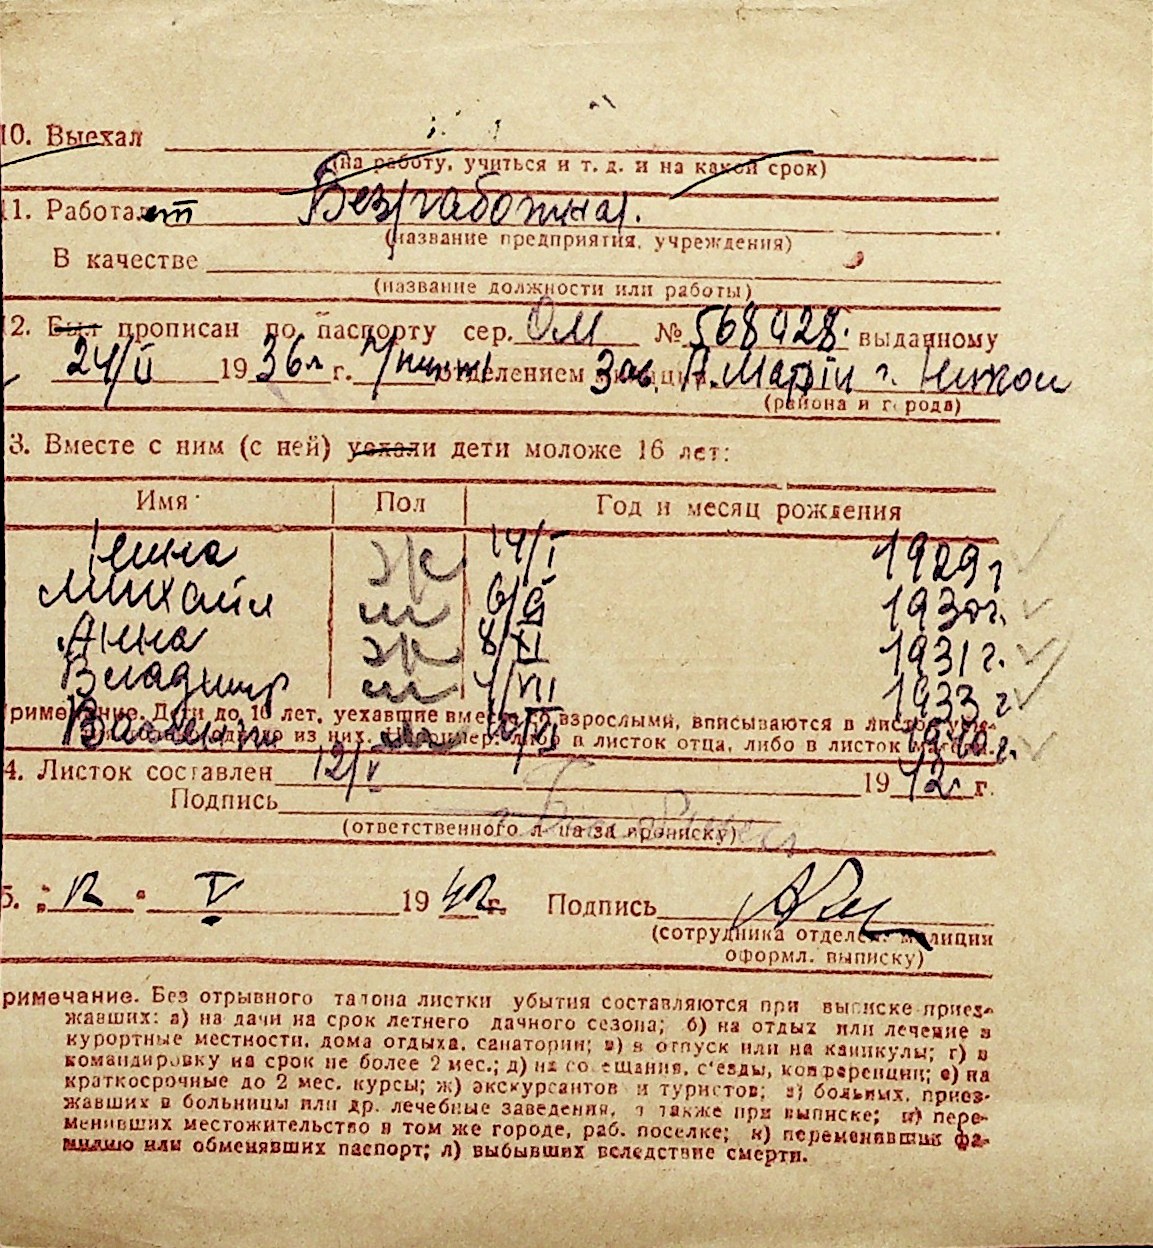 10. Выехал
(на работу, учиться и т. д. и на какой срок)
11. Работает Безработная.
(название предприятия, учреждения)
В качестве
(название должности или работы)
12. Был прописан по паспорту сер. ОМ № 568028. выданному
24/II 1936 г. отделением Зав. г.
(района и города)
13. Вместе с ним (с ней) уехали дети моложе 16 лет:
Имя Пол Год и месяц рождения
Нина ж 14/I 1929 г
Михаил м 6/ 1930 г.
Анна ж 8/XI 1931 г.
Владимир м 1/VII 1933 г
Примечание. Дети до 16 лет, уехавшие вместе со взрослыми, вписываются в листок
Валентин м 1940 г.
из них. Например: либо в листок отца, либо в листок матери.
14. Листок составлен 12/V 1942 г.
Подпись
(ответственного л-ца за прописку)
15. „12“ V 1942 г. Подпись
(сотрудника отделен. милиции
оформл. выписку)
Примечание. Без отрывного талона листки убытия составляются при выписке приез-
жавших: а) на дачи на срок летнего дачного сезона; б) на отдых или лечение в
курортные местности, дома отдыха, санатории; в) в отпуск или на каникулы; г) в
командировку на срок не более 2 мес.; д) на совещания, с'езды, конференции; е) на
краткосрочные до 2 мес. курсы; ж) экскурсантов и туристов; з) больных, приез-
жавших в больницы или др. лечебные заведения, а также при выписке; и) пере-
менивших местожительство в том же городе, раб. поселке; к) переменивших фа-
милию или обменявших паспорт; л) выбывших вследствие смерти.